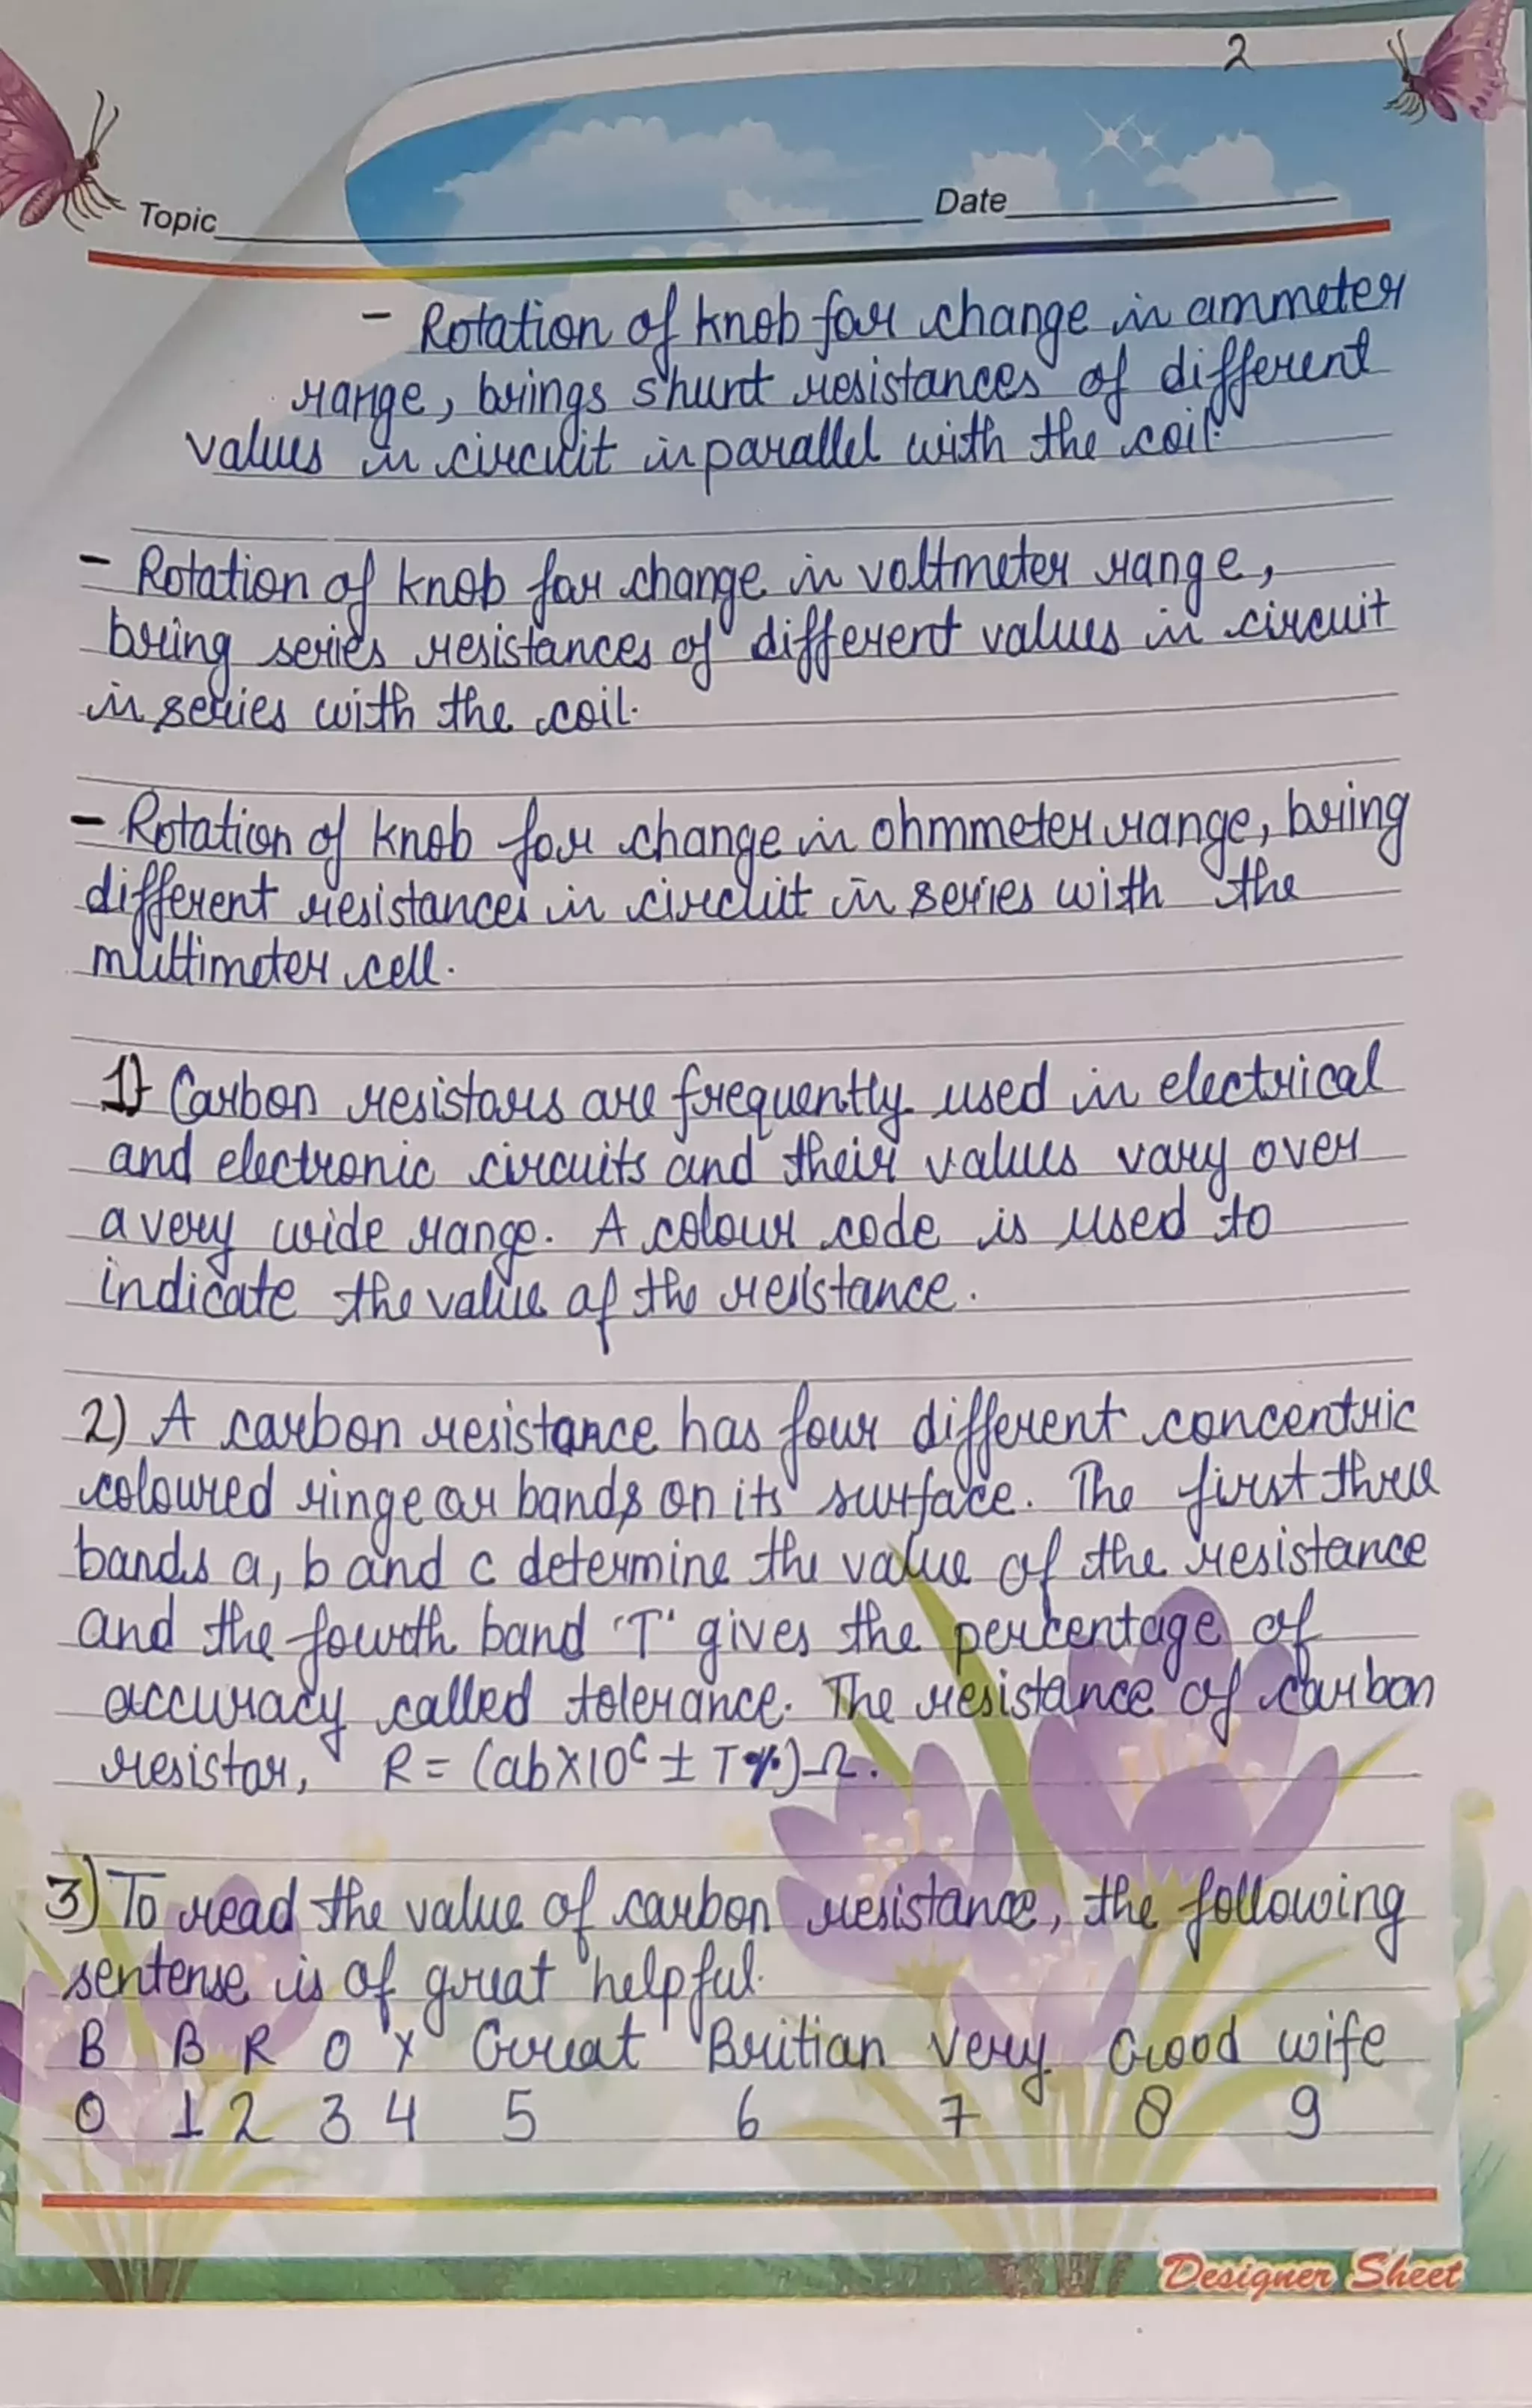 2
Topic Date
- Rotation of knob for change in ammeter
range, brings shunt resistances of different
values in circuit in parallel with the coil.
- Rotation of knob for change in voltmeter range,
bring series resistances of different values in circuit
in series with the coil.
- Rotation of knob for change in ohmmeter range, bring
different resistances in circuit in series with the
multimeter cell.
1) Carbon resistors are frequently used in electrical
and electronic circuits and their values vary over
a very wide range. A colour code is used to
indicate the value of the resistance.
2) A carbon resistance has four different concentric
coloured ringe or bands on its surface. The first three
bands a, b and c determine the value of the resistance
and the fourth band 'T' gives the percentage of
accuracy called tolerance. The resistance of carbon
resistor, R = (ab×10ᶜ ± T%) Ω.
3) To read the value of carbon resistance, the following
sentense is of great helpful.
B B R O Y Great Britian Very Good wife
0 1 2 3 4 5 6 7 8 9
Designer Sheet